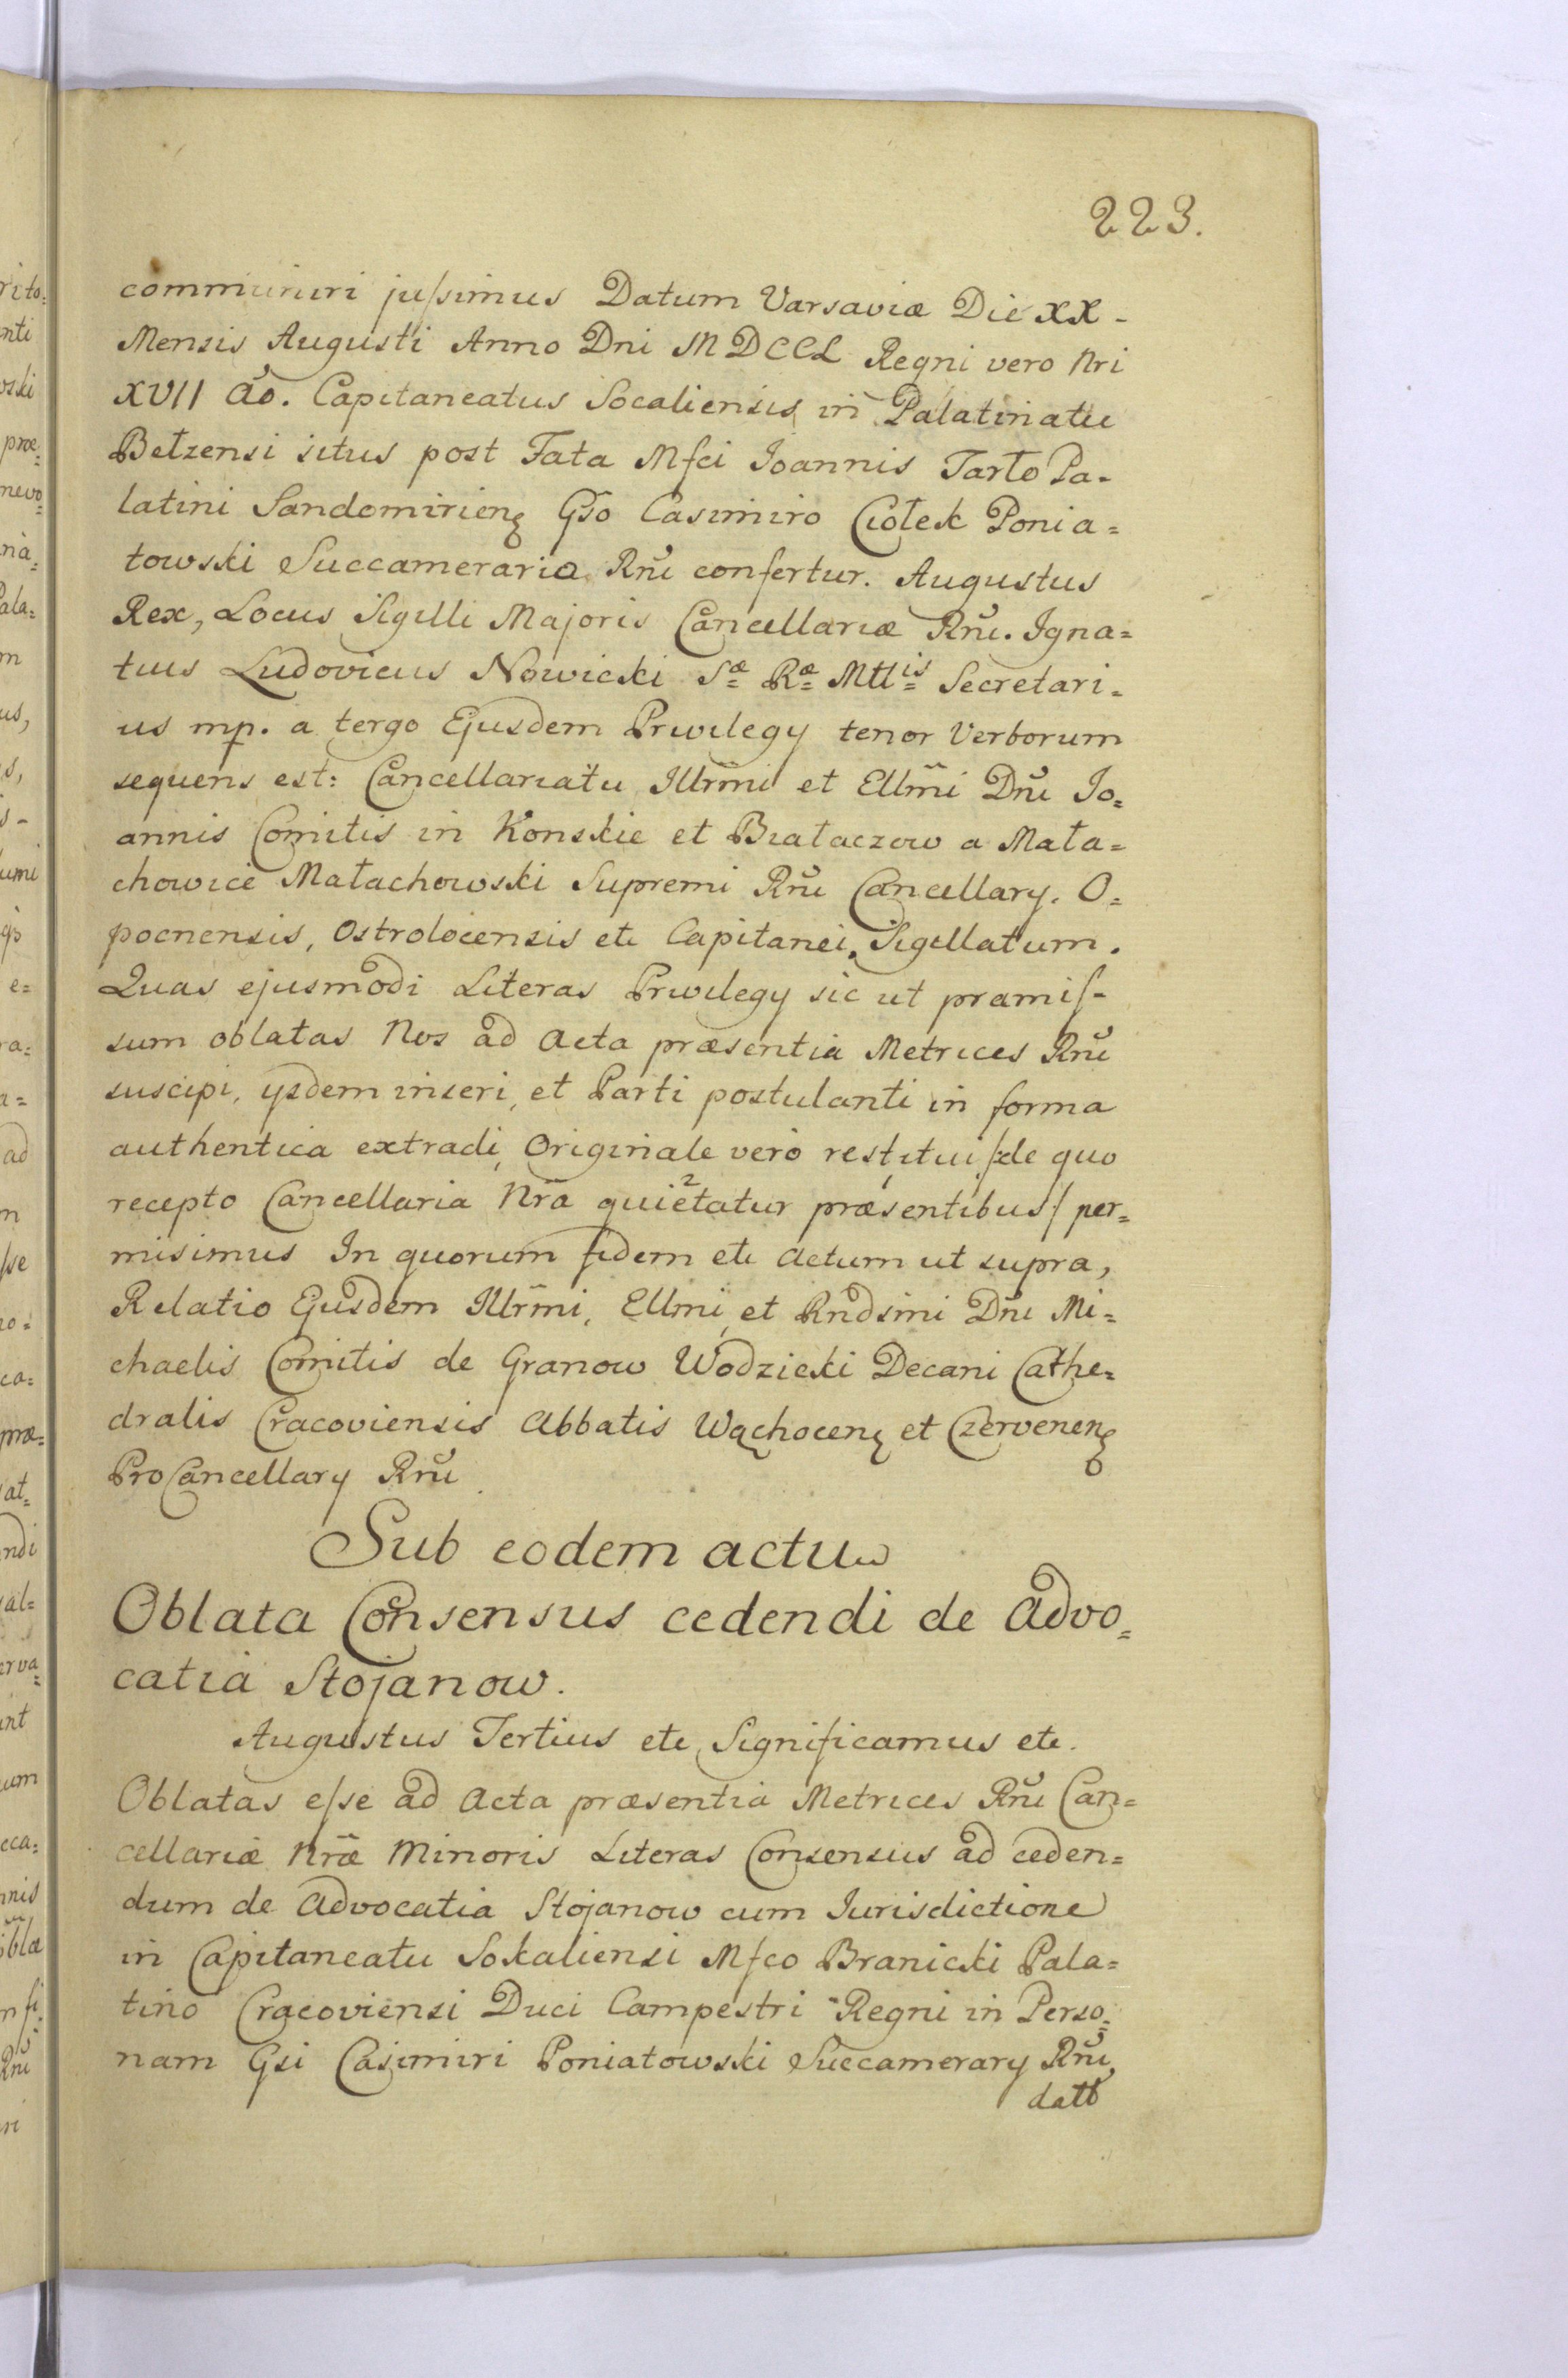 223.
communiri jussimus Datum Varsaviæ Die XX -
Mensis Augusti Anno Dni MDCCL Regni vero Nri
XVII ao. Capitaneatus Socaliensis in Palatinatu
Betzensi situs post Fata Mfci Joannis Tarło Pa-
latini Sandomirien Gso Casimiro Ciołek Ponia=
towski Succamerario Rni confertur. Augustus
Rex, Locus Sigilli Majoris Cancellariæ Rni. Igna=
tius Ludovicus Nowicki Sæ Ræ Mttis Secretari=
us mp. a tergo Ejusdem Privilegy tenor Verborum
sequens est: Cancellariatu Illrmi et Ellmi Dni Jo=
annis Comitis in Konskie et Białaczow a Mała=
chowice Małachowski Supremi Rni Cancellary. O=
pocnensis, Ostrolocensis etc Capitanei. Sigillatum.
Quas ejusmodi Literas Privilegy sic ut præmis=
sum oblatas Nos ad Acta præsentia Metrices Rni
suscipi, ysdem inseri, et Parti postulanti in forma
authentica extradi, Originale vero restitui /:de quo
recepto Cancellaria Nra quietatur præsentibus/ per=
misimus In quorum fidem etc Actum ut supra,
Relatio Ejusdem Illrmi, Ellmi, et Rndsmi Dni Mi=
chaelis Comitis de Granow Wodzicki Decani Cathe=
dralis Cracoviensis Abbatis Wąchocen et Czervenen
ProCancellary Rni
Sub eodem actu
Oblata Consensus cedendi de Advo=
catia Stojanow.
Augustus Tertius etc Significamus etc.
Oblatas esse ad Acta præsentia Metrices Rni Can=
cellariæ Nræ Minoris Literas Consensus ad ceden=
dum de Advocatia Stojanow cum Jurisdictione
in Capitaneatu Sokaliensi Mfco Branicki Pala=
tino Cracoviensi Duci Campestri Regni in Perso=
nam Gsi Casimiri Poniatowski Succamerary Rni,
datt